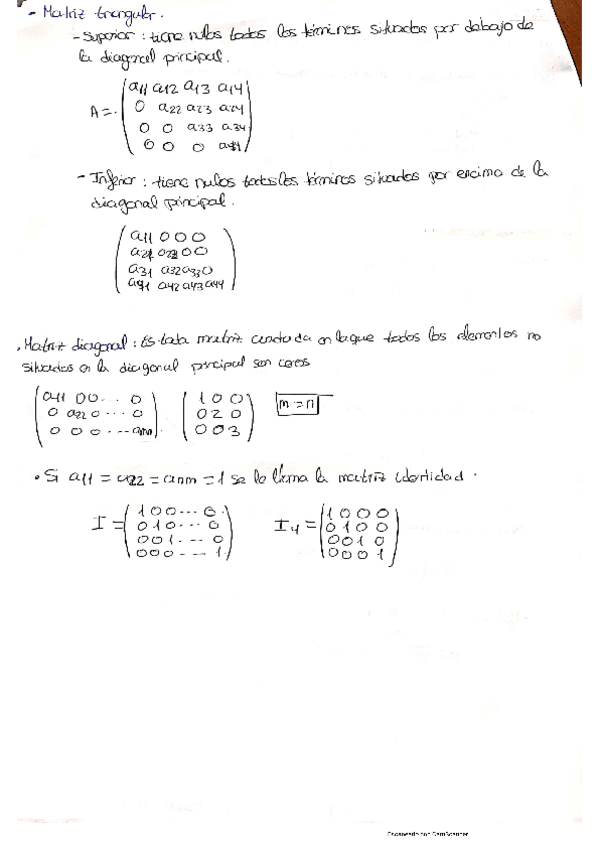 - Matriz triangular.
- Superior : tiene nulos todos los términos situados por debajo de
la diagonal principal.
A = (a11 a12 a13 a14
0 a22 a23 a24
0 0 a33 a34
0 0 0 a44)
- Inferior : tiene nulos todos los términos situados por encima de la
diagonal principal.
(a11 0 0 0
a21 a22 0 0
a31 a32 a33 0
a41 a42 a43 a44)
. Matriz diagonal : Es toda matriz cuadrada en la que todos los elementos no
situados en la diagonal principal son ceros
(a11 0 0 ... 0
0 a22 0 ... 0
0 0 0 ... ann) (1 0 0
0 2 0
0 0 3) m = n
• Si a11 = a22 = anm = 1 se le llama la matriz identidad .
I = (1 0 0 ... 0
0 1 0 ... 0
0 0 1 ... 0
0 0 0 ... 1) I4 = (1 0 0 0
0 1 0 0
0 0 1 0
0 0 0 1)
Escaneado con CamScanner